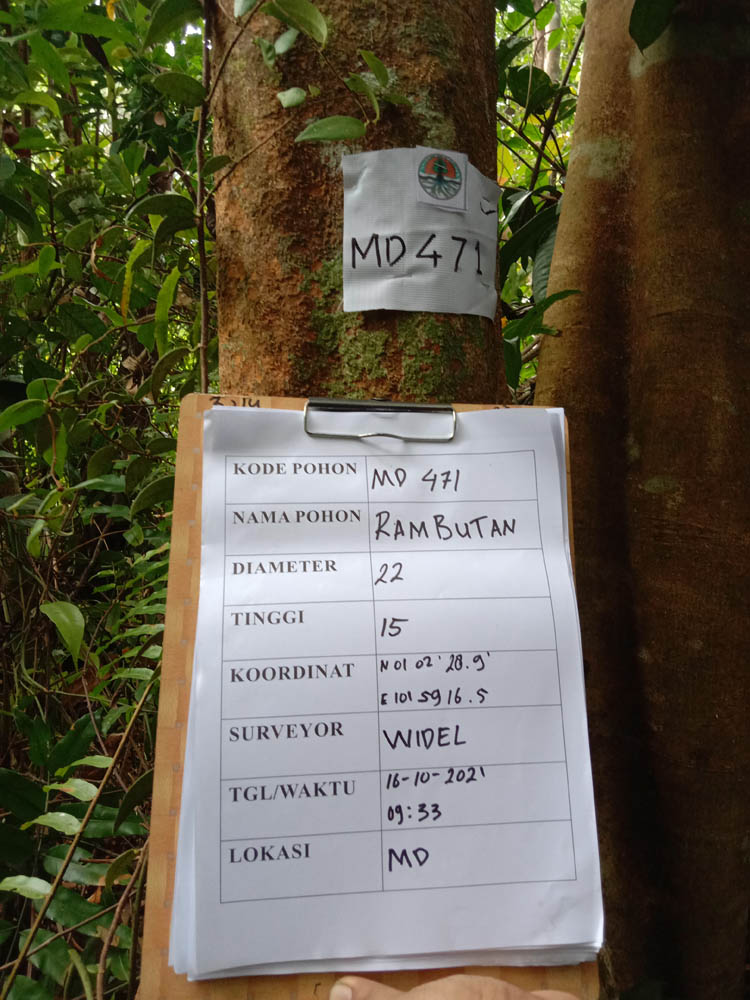 MD 471
KODE POHON MD 471
NAMA POHON RAMBUTAN
DIAMETER 22
TINGGI 15
KOORDINAT N 01 02' 28.9'
E 101 59 16.5
SURVEYOR WIDEL
TGL/WAKTU 16-10-2021
09:33
LOKASI MD